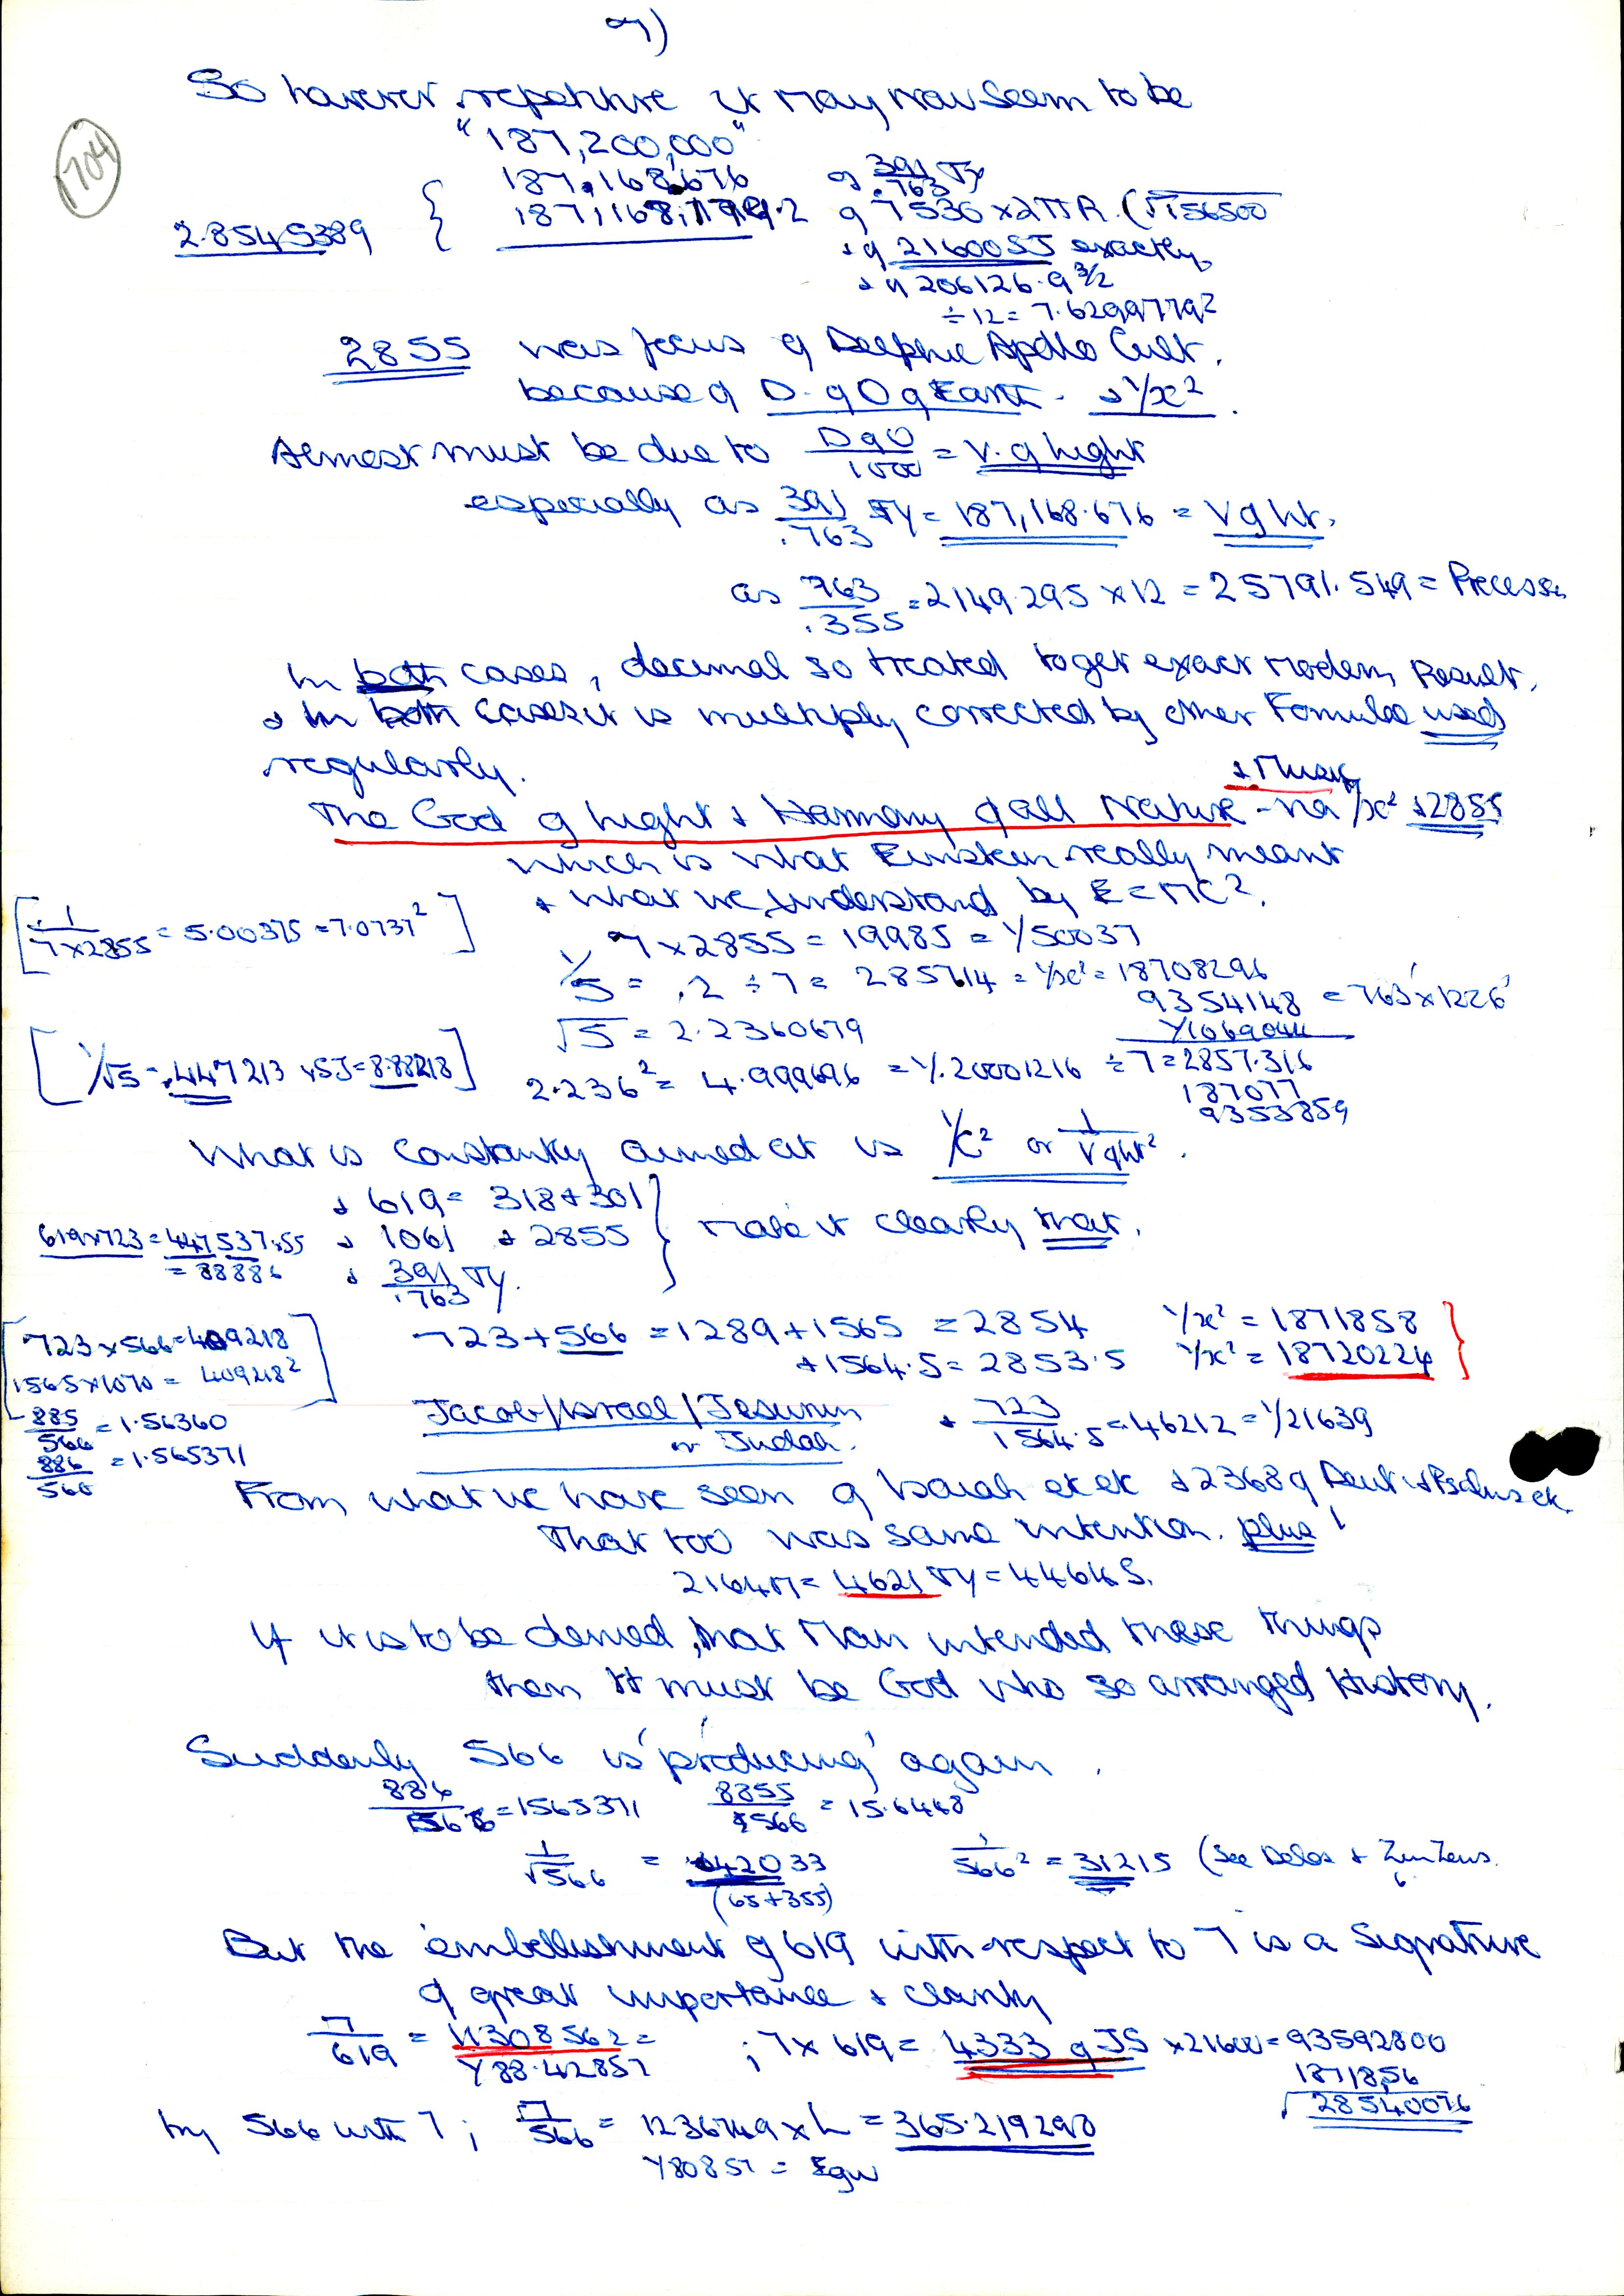 7)
So however repetitive it may now seem to be
1704
"187,200,000"
187,168.676 of 391/.763 TY
2.8545389 { 187,168,199.2 of 7536 × 2πR (√156500
+ of 216005J exactly
+ of 206126.9 3/2
÷ 12 = 7.6299779²
2855 was focus of Delphic Apollo Cult,
because of D. of O of Earth. + 1/x².
Almost must be due to D of O/1000 = V. of light
especially as 391/.763 TY = 187,168.676 = V of Lt.
as 763/.355 = 2149.295 × 12 = 25791.549 = Precessn
In both cases, decimal so treated to get exact modern Result.
+ in both cases it is multiply corrected by other Formulae used
regularly.
+ Music
The God of Light + Harmony of all Nature - via 1/x² + 2855
which is what Einstein really meant
+ what we understand by E = MC².
[1/7×2855 = 5.00375 = 7.0737²]
7 × 2855 = 19985 = 1/50037
1/5 = .2 ÷ 7 = 285714 = 1/x² = 18708296
9354148 = 763 × 1226
√5 = 2.2360679
1/1069044
[1/√5 = .447213 × SJ = 8.88218]
2.236² = 4.999696 = 1/.20001216 ÷ 7 = 2857.316
187077
9353859
What is constantly aimed at is 1/C² or 1/V of Lt².
+ 619 = 318 + 301
619×723 = 447537.55 + 1061 + 2855 } make it clearly that.
= 88886 + 391/.763 TY.
[723 × 566 = 409218
1565×1070 = 409218²]
723 + 566 = 1289 + 1565 = 2854 1/x² = 1871858
+ 1564.5 = 2853.5 1/x² = 18720224
885/566 = 1.56360
886/566 = 1.565371
Jacob/Israel/Jesurun
or Judah.
+ 723/1564.5 = 46212 = 1/21639
From what we have seen of Isaiah etc etc + 2368 of Deut + Psalms etc
That too was same intention. plus!
2164M = 4621 TY = 4464 S.
If it is to be denied, that Man intended these things
then it must be God who so arranged History.
Suddenly 566 is 'producing' again.
886/566 = 1565371 8855/566 = 15.6448
1/√566 = 42033 1/566² = 31215 (See Delos + Zeus
(65+355)
But the embellishment of 619 with respect to 7 is a Signature
of great importance + clarity
7/619 = 11308562 = ; 7 × 619 = 4333 of JS × 21600 = 93592800
1/88.42857
18718,56
√28540076
try 566 with 7; 7/566 = 1236749 × L = 365.219290
1/80857 =